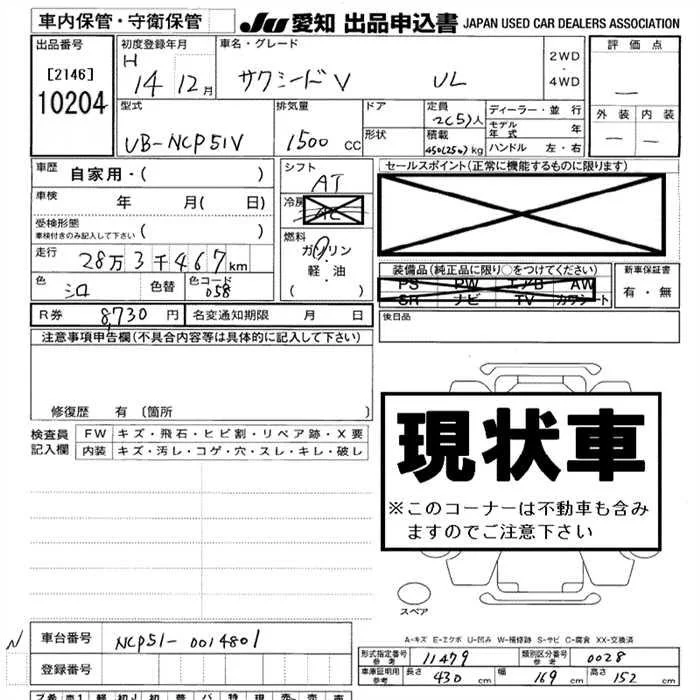 車内保管・守衛保管 JU 愛知 出品申込書 JAPAN USED CAR DEALERS ASSOCIATION
出品番号
[2146]
10204
初度登録年月
H 14 12月
車名・グレード
サクシードV UL
2WD・4WD
評価点
—
外装 内装
— —
型式
UB-NCP51V
排気量
1500 cc
ドア
形状
定員
2(5)人
積載
450(250)kg
ディーラー・並行
モデル年式 年
ハンドル 左・右
車歴 自家用・( )
車検 年 月( 日)
受検形態
車検付きのみ記入して下さい ( )
走行 28万3千467km
色 シロ 色替 色コード 058
シフト
AT
冷房
AC
燃料
ガソリン
軽・油
( )
セールスポイント(正常に機能するものに限ります)
装備品(純正品に限り○をつけてください)
PS PW エアB AW
SR ナビ TV カワシート
新車保証書
有・無
後日品
R券 8,730円 名変通知期限 月 日
注意事項申告欄(不具合内容等は具体的に記入して下さい)
修復歴 有〔箇所 〕
検査員記入欄
FW キズ・飛石・ヒビ割・リペア跡・X要
内装 キズ・汚レ・コゲ・穴・スレ・キレ・破レ
現状車
※このコーナーは不動車も含み
ますのでご注意下さい
スペア
A-キズ E-エクボ U-凹み W-補修跡 S-サビ C-腐食 XX-交換済
N
車台番号 NCP51-0014801
登録番号
形式指定番号 参考 11479 類別区分番号 参考 0028
車庫証明用 参考 長さ 430 cm 幅 169 cm 高さ 152 cm